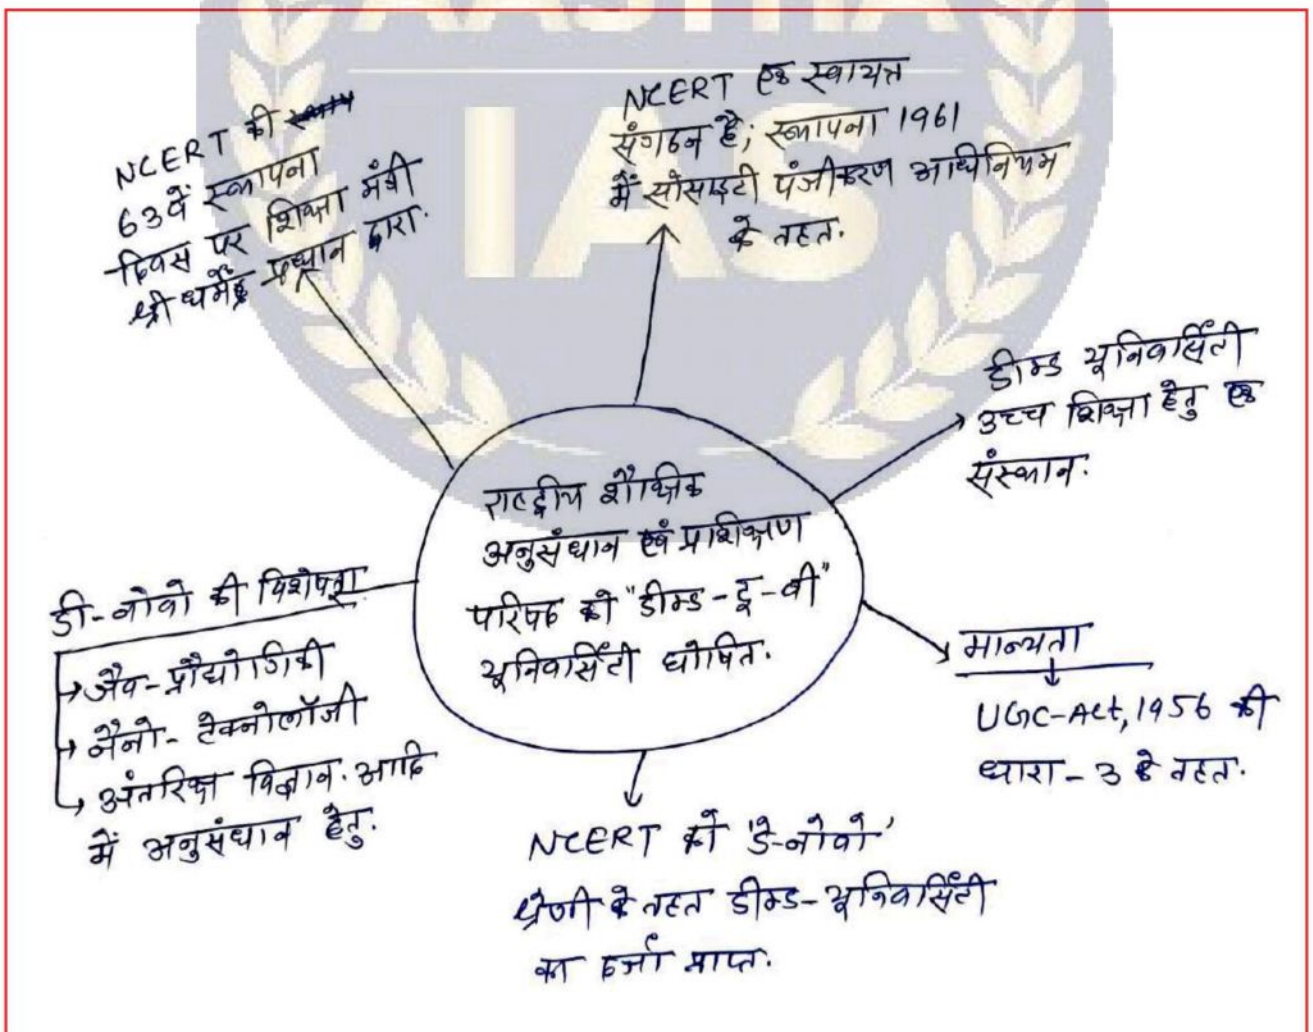 AASTHA
IAS
NCERT की
63वें स्थापना
दिवस पर शिक्षा मंत्री
श्री धर्मेंद्र प्रधान द्वारा.
NCERT एक स्वायत्त
संगठन है; स्थापना 1961
में सोसाइटी पंजीकरण अधिनियम
के तहत.
डीम्ड यूनिवर्सिटी
उच्च शिक्षा हेतु एक
संस्थान.
राष्ट्रीय शैक्षिक
अनुसंधान एवं प्रशिक्षण
परिषद को "डीम्ड-टू-बी"
यूनिवर्सिटी घोषित.
डी-नोवो की विशेषता
→ जैव-प्रौद्योगिकी
→ नैनो-टेक्नोलॉजी
→ अंतरिक्ष विज्ञान. आदि
में अनुसंधान हेतु.
मान्यता
UGC-Act, 1956 की
धारा-3 के तहत.
NCERT को 'डे-नोवो'
श्रेणी के तहत डीम्ड-यूनिवर्सिटी
का दर्जा प्राप्त.